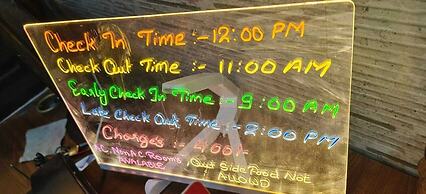 Check In Time :- 12:00 PM
Check Out Time :- 11:00 AM
Early Check In Time :- 9:00 AM
Late Check Out Time :- 2:00 PM
Charges :- 400/-
A.C, Non AC Rooms AVAILABLE
Out Side Food Not ALLOUD